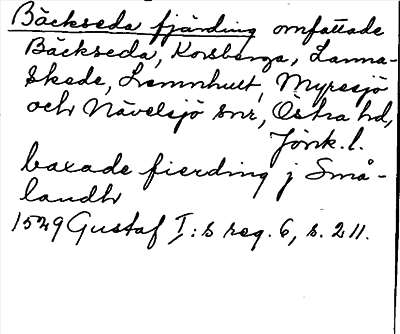 Bäckseda fjärding omfattade
Bäckseda, Korsberga, Lanna-
skede, Lemnhult, Myresjö
och Nävelsjö snr, Östra hd,
Jönk. l.
baxade fierding j Små-
landh
1529 Gustaf I:s reg. 6, s. 211.